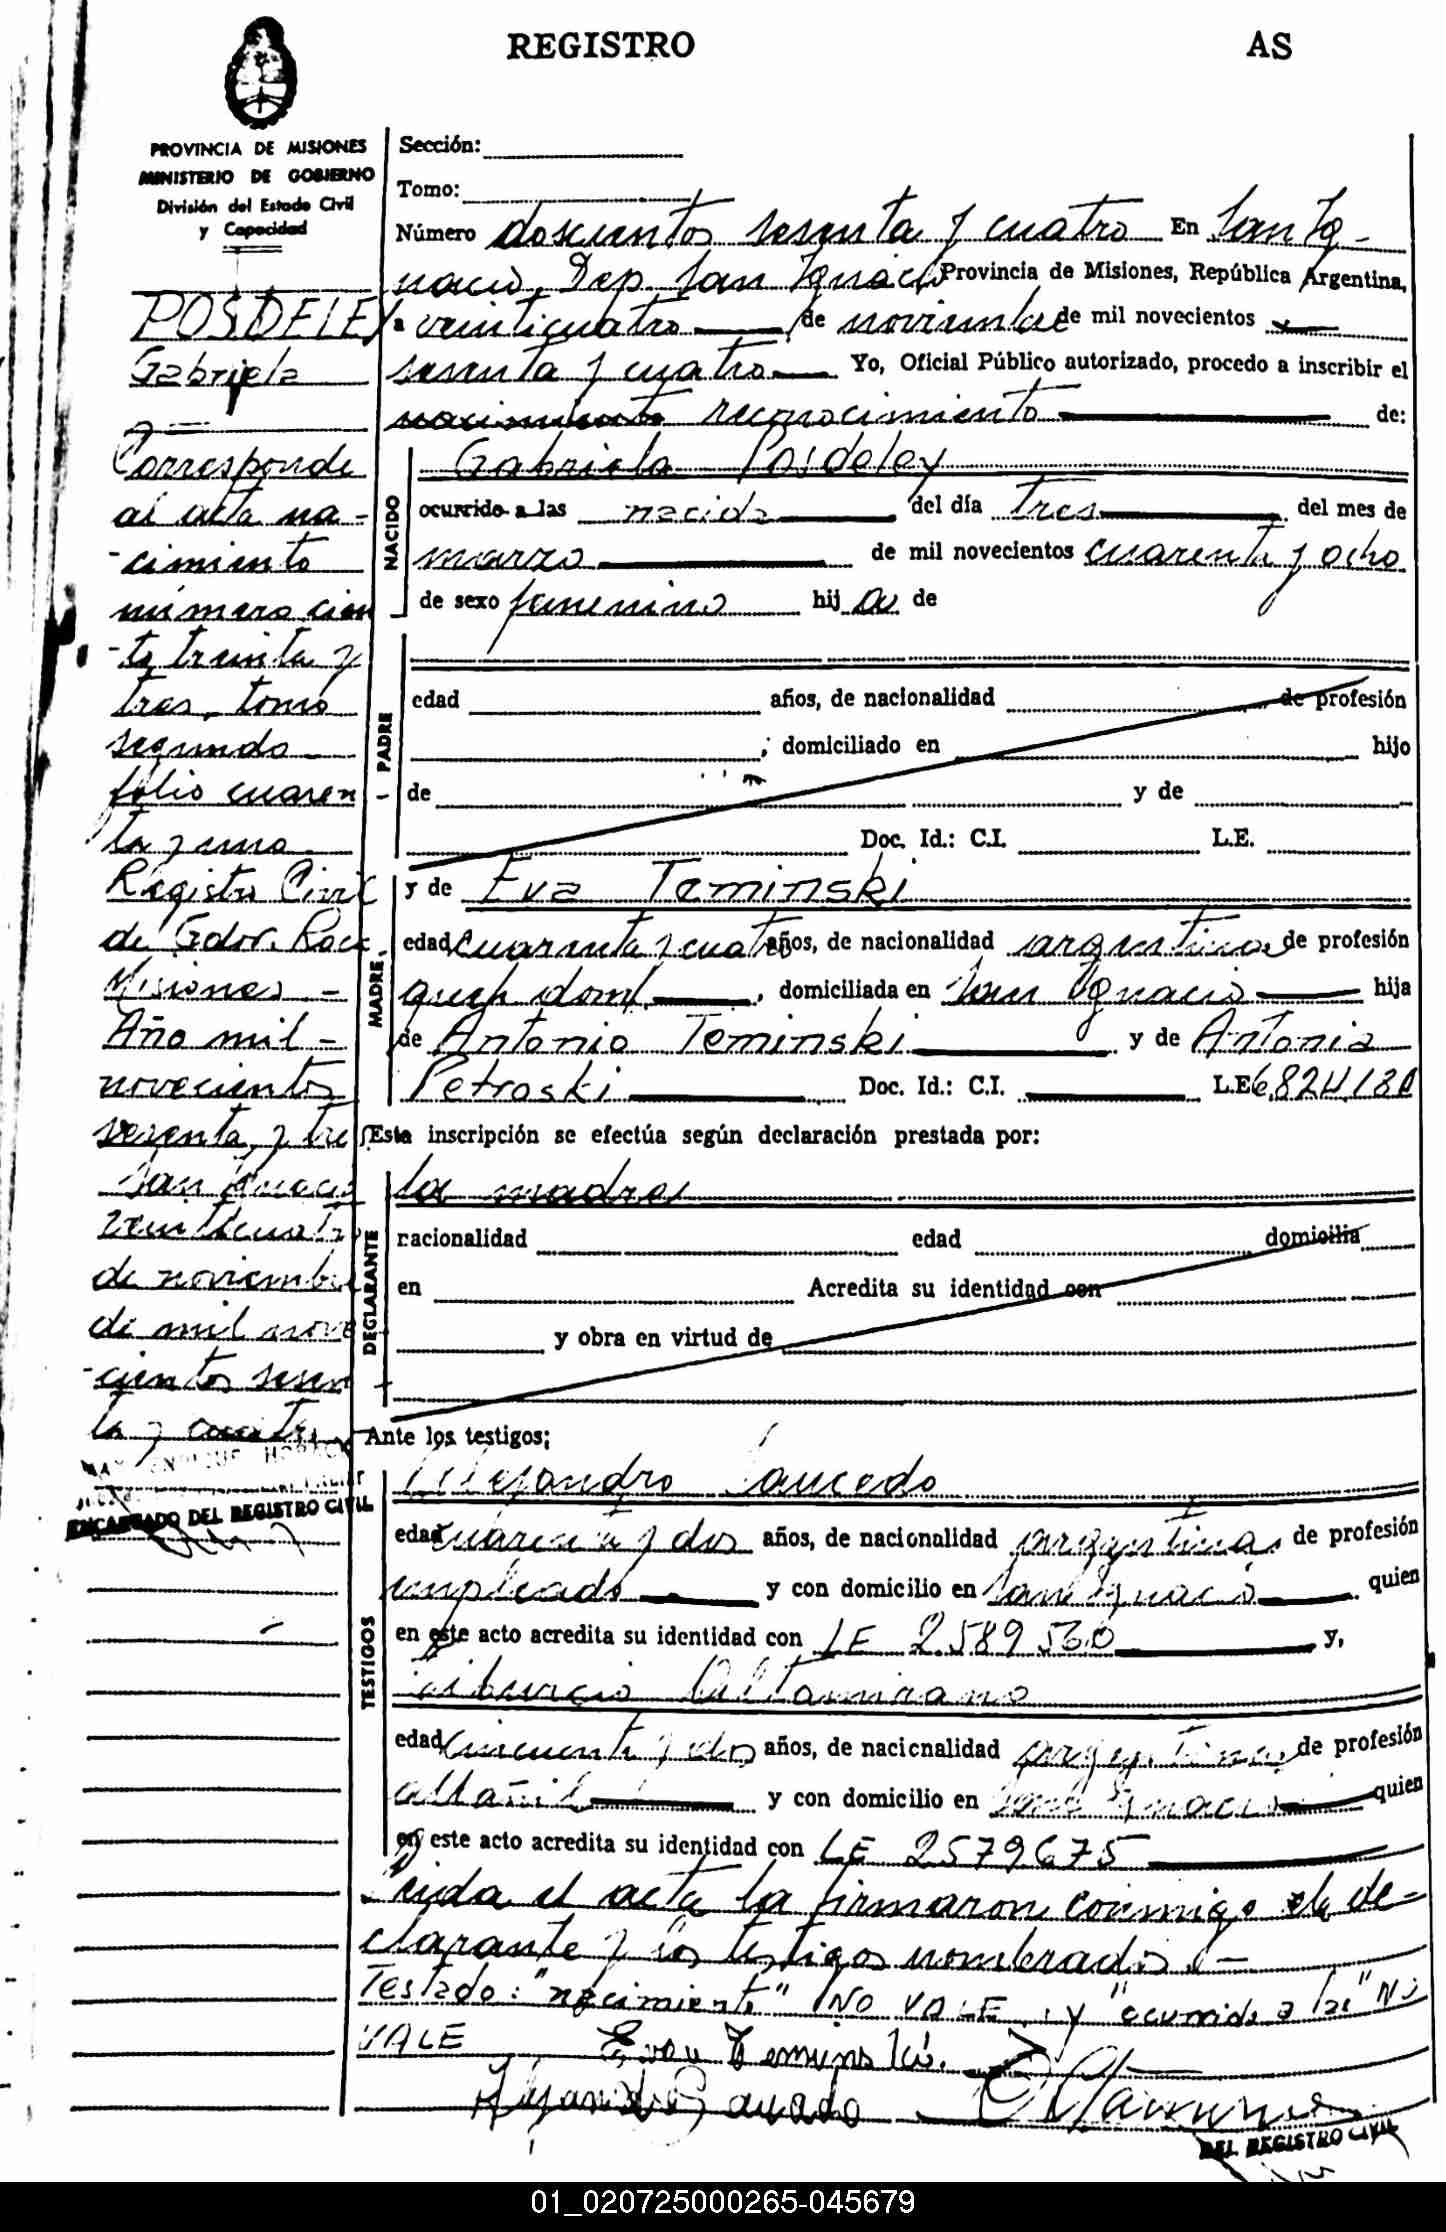 REGISTRO AS
PROVINCIA DE MISIONES
MINISTERIO DE GOBIERNO
División del Estado Civil
y Capacidad
POSDELEY
Gabriela
Corresponde
al acta na-
-cimiento
número cien
-to treinta y
tres, tomo
segundo
folio cuaren-
ta y uno
Registro Civil
de Gdor. Roca
Misiones -
Año mil -
novecientos
sesenta y tre
San Ignacio
veinticuatro
de noviembre
de mil nove
-cientos sesen
ta y cuatro
ENRIQUE
ENCARGADO DEL REGISTRO CIVIL
Sección:
Tomo:
Número doscientos sesenta y cuatro En San Ig-
nacio, Dep. San Ignacio Provincia de Misiones, República Argentina,
a veinticuatro de noviembre de mil novecientos
sesenta y cuatro Yo, Oficial Público autorizado, procedo a inscribir el
nacimiento reconocimiento de:
NACIDO
Gabriela Posdeley
ocurrido a las nacida del día tres del mes de
marzo de mil novecientos cuarenta y ocho
de sexo femenino hij a de
PADRE
edad años, de nacionalidad de profesión
; domiciliado en hijo
de y de
Doc. Id.: C.I. L.E.
MADRE
y de Eva Teminski
edad cuarenta y cuatro años, de nacionalidad argentina de profesión
queh dom. , domiciliada en San Ignacio hija
de Antonio Teminski y de Antonia
Petroski Doc. Id.: C.I. L.E. 6824130
Esta inscripción se efectúa según declaración prestada por:
DECLARANTE
la madre
nacionalidad edad domicilia
en Acredita su identidad con
y obra en virtud de
Ante los testigos;
TESTIGOS
Alejandro Saucedo
edad cuarenta y dos años, de nacionalidad argentina de profesión
empleado y con domicilio en San Ignacio quien
en este acto acredita su identidad con LE 2589560 y,
Tiburcio Altamirano
edad cincuenta y dos años, de nacionalidad argentina de profesión
albañil y con domicilio en San Ignacio quien
en este acto acredita su identidad con LE 2579675
Leida el acta la firmaron conmigo la de-
clarante y los testigos nombrados.-
Testado: "nacimiento" NO VALE , y "ocurrido a las" NO
VALE Eva Teminski.
Alejandro Saucedo
DEL REGISTRO CIVIL
01_020725000265-045679